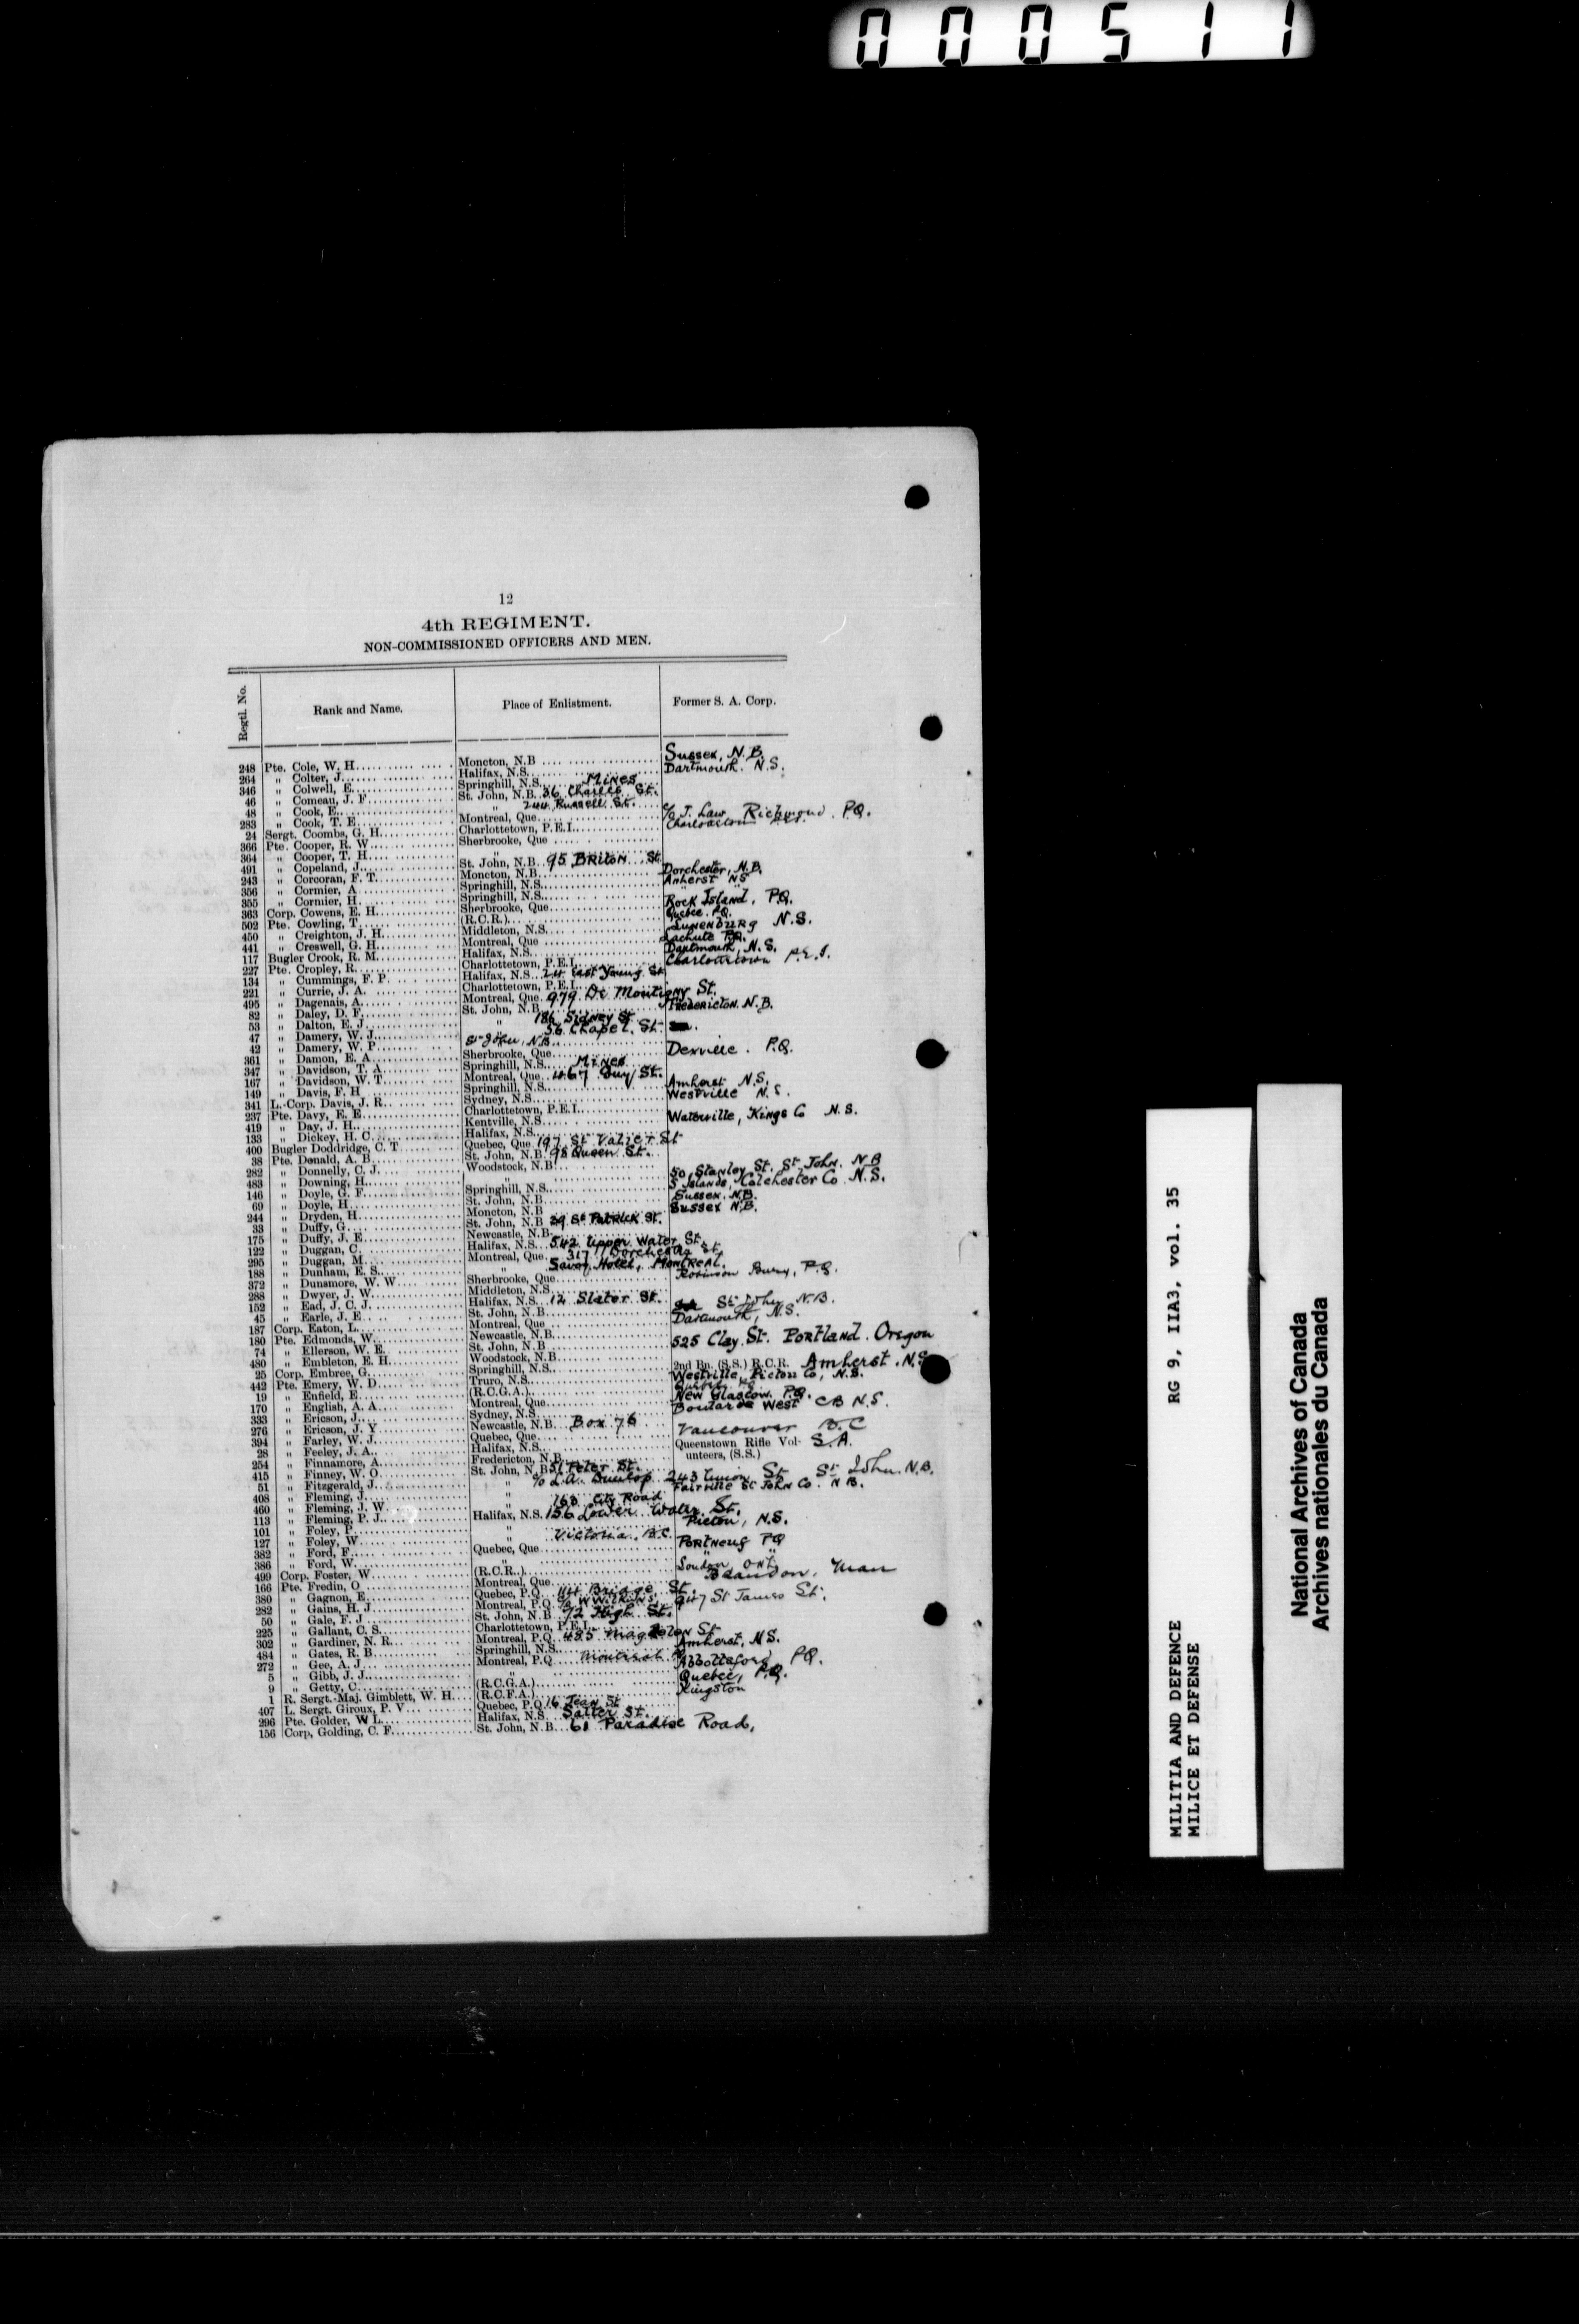 000511
12
4th REGIMENT.
NON-COMMISSIONED OFFICERS AND MEN.
Regtl. No. Rank and Name. Place of Enlistment. Former S. A. Corp.
248 Pte. Cole, W. H. Moncton, N.B Sussex, N.B.
264 „ Colter, J. Halifax, N.S. Dartmouth. N.S.
346 „ Colwell, E. Springhill, N.S. Mines
46 „ Comeau, J. F. St. John, N.B. 36 Charles St.
48 „ Cook, E. „ 244 Russell St.
283 „ Cook, T. E. Montreal, Que. c/o J. Law Richmond. P.Q.
24 Sergt. Coombs, G. H. Charlottetown, P.E.I. Charlottetown
366 Pte. Cooper, R. W. Sherbrooke, Que
364 „ Cooper, T. H. „
491 „ Copeland, J. St. John, N.B. 95 Briton St
243 „ Corcoran, F. T. Moncton, N.B. Dorchester, N.B.
356 „ Cormier, A. Springhill, N.S. Amherst NS
355 „ Cormier, H. Springhill, N.S.
363 Corp. Cowens, E. H. Sherbrooke, Que. Rock Island, P.Q.
502 Pte. Cowling, T. (R.C.R.) Quebec. P.Q.
450 „ Creighton, J. H. Middleton, N.S. Lunenburg N.S.
441 „ Creswell, G. H. Montreal, Que Lachute P.Q.
117 Bugler Crook, R. M. Halifax, N.S. Dartmouth, N.S.
227 Pte. Cropley, R. Charlottetown, P.E.I. Charlottetown P.E.I.
134 „ Cummings, F. P. Halifax, N.S. 24 East Young St
221 „ Currie, J. A. Charlottetown, P.E.I.
495 „ Dagenais, A. Montreal, Que. 979 De Montigny St.
82 „ Daley, D. F. St. John, N.B. Fredericton. N.B.
53 „ Dalton, E. J. „ 186 Sidney St
47 „ Damery, W. J. „ 36 Chapel St.
42 „ Damery, W. P. St John, N.B.
361 „ Damon, E. A. Sherbrooke, Que. Dexville. P.Q.
347 „ Davidson, T. A. Springhill, N.S. Mines
167 „ Davidson, W. T. Montreal, Que. 467 Guy St.
149 „ Davis, F. H. Springhill, N.S. Amherst N.S.
341 L.-Corp. Davis, J. R. Sydney, N.S. Westville N.S.
237 Pte. Davy, E. E. Charlottetown, P.E.I.
419 „ Day, J. H. Kentville, N.S. Waterville, Kings Co N.S.
133 „ Dickey, H. C. Halifax, N.S.
400 Bugler Doddridge, C. T. Quebec, Que 197 St Valier St
38 Pte. Donald, A. B. St. John, N.B. 98 Queen St.
282 „ Donnelly, C. J. Woodstock, N.B.
483 „ Downing, H. „ 50 Stanley St. St John. N.B
146 „ Doyle, G. F. Springhill, N.S. 5 Islands, Colchester Co. N.S.
69 „ Doyle, H. St. John, N.B. Sussex. N.B.
244 „ Dryden, H. Moncton, N.B Sussex N.B.
33 „ Duffy, G. St. John, N.B 29 St Patrick St.
175 „ Duffy, J. E. Newcastle, N.B.
122 „ Duggan, C. Halifax, N.S. 542 Upper Water St.
295 „ Duggan, M. Montreal, Que. 317 Dorchester St.
188 „ Dunham, E. S. „ Savoy Hotel, Montreal.
372 „ Dunsmore, W. W. Sherbrooke, Que. Robinson Bury, P.Q.
288 „ Dwyer, J. W. Middleton, N.S.
152 „ Ead, J. C. J. Halifax, N.S. 12 Slater St.
45 „ Earle, J. E. St. John, N.B. St. John N.B.
187 Corp. Eaton, L. Montreal, Que Dartmouth, N.S.
180 Pte. Edmonds, W. Newcastle, N.B.
74 „ Ellerson, W. E. St. John, N.B 525 Clay St. Portland. Oregon
480 „ Embleton, E. H. Woodstock, N.B.
25 Corp. Embree, G. Springhill, N.S. 2nd Bn. (S.S.) R.C.R. Amherst. N.S
442 Pte. Emery, W. D. Truro, N.S. Westville, Pictou Co, N.S.
19 „ Enfield, E. (R.C.G.A.)
170 „ English, A. A. Montreal, Que. New Glasgow. P.Q.
333 „ Ericson, J. Sydney, N.S. Boularde West CB N.S.
276 „ Ericson, J. Y Newcastle, N.B. Box 76
394 „ Farley, W. J. Quebec, Que. Vancouver B.C
28 „ Feeley, J. A. Halifax, N.S. Queenstown Rifle Volunteers, (S.S.) S.A.
254 „ Finnamore, A. Fredericton, N.B.
415 „ Finney, W. O. St. John, N.B 31 Peter St.
51 „ Fitzgerald, J. „ c/o L.A. Dunlop 243 Union St St John. N.B.
408 „ Fleming, J. „ Fairville St John Co. N.B.
460 „ Fleming, J. W. „ 168 City Road
113 „ Fleming, P. J. Halifax, N.S. 156 Lower Water St.
101 „ Foley, P. „ Pictou, N.S.
127 „ Foley, W. „ Victoria, B.C.
382 „ Ford, F. Quebec, Que Portneuf PQ
386 „ Ford, W. „
499 Corp. Foster, W. (R.C.R.) London, Ont
166 Pte. Fredin, O Montreal, Que. Brandon, Man
380 „ Gagnon, E. Quebec, P.Q. 114 Bridge St.
282 „ Gains, H. J Montreal, P.Q. c/o W Wilkins, 947 St James St.
50 „ Gale, F. J St. John, N.B. 92 High St.
225 „ Gallant, C. S. Charlottetown, P.E.I.
302 „ Gardiner, N. R. Montreal, P.Q. 485 Magdalen St
484 „ Gates, R. B. Springhill, N.S. Amherst, N.S.
272 „ Gee, A. J. Montreal, P.Q. Montreal Abbotsford P.Q.
5 „ Gibb, J. J. „
9 „ Getty, C. (R.C.G.A.) Quebec, P.Q.
1 R. Sergt.-Maj. Gimblett, W. H. (R.C.F.A.) Kingston
407 L. Sergt. Giroux, P. V. Quebec, P.Q. 16 Jean St
296 Pte. Golder, W L. Halifax, N.S Salter St.
156 Corp, Golding, C. F. St. John, N.B. 61 Paradise Road,
MILITIA AND DEFENCE RG 9, IIA3, vol. 35
MILICE ET DEFENSE
National Archives of Canada
Archives nationales du Canada